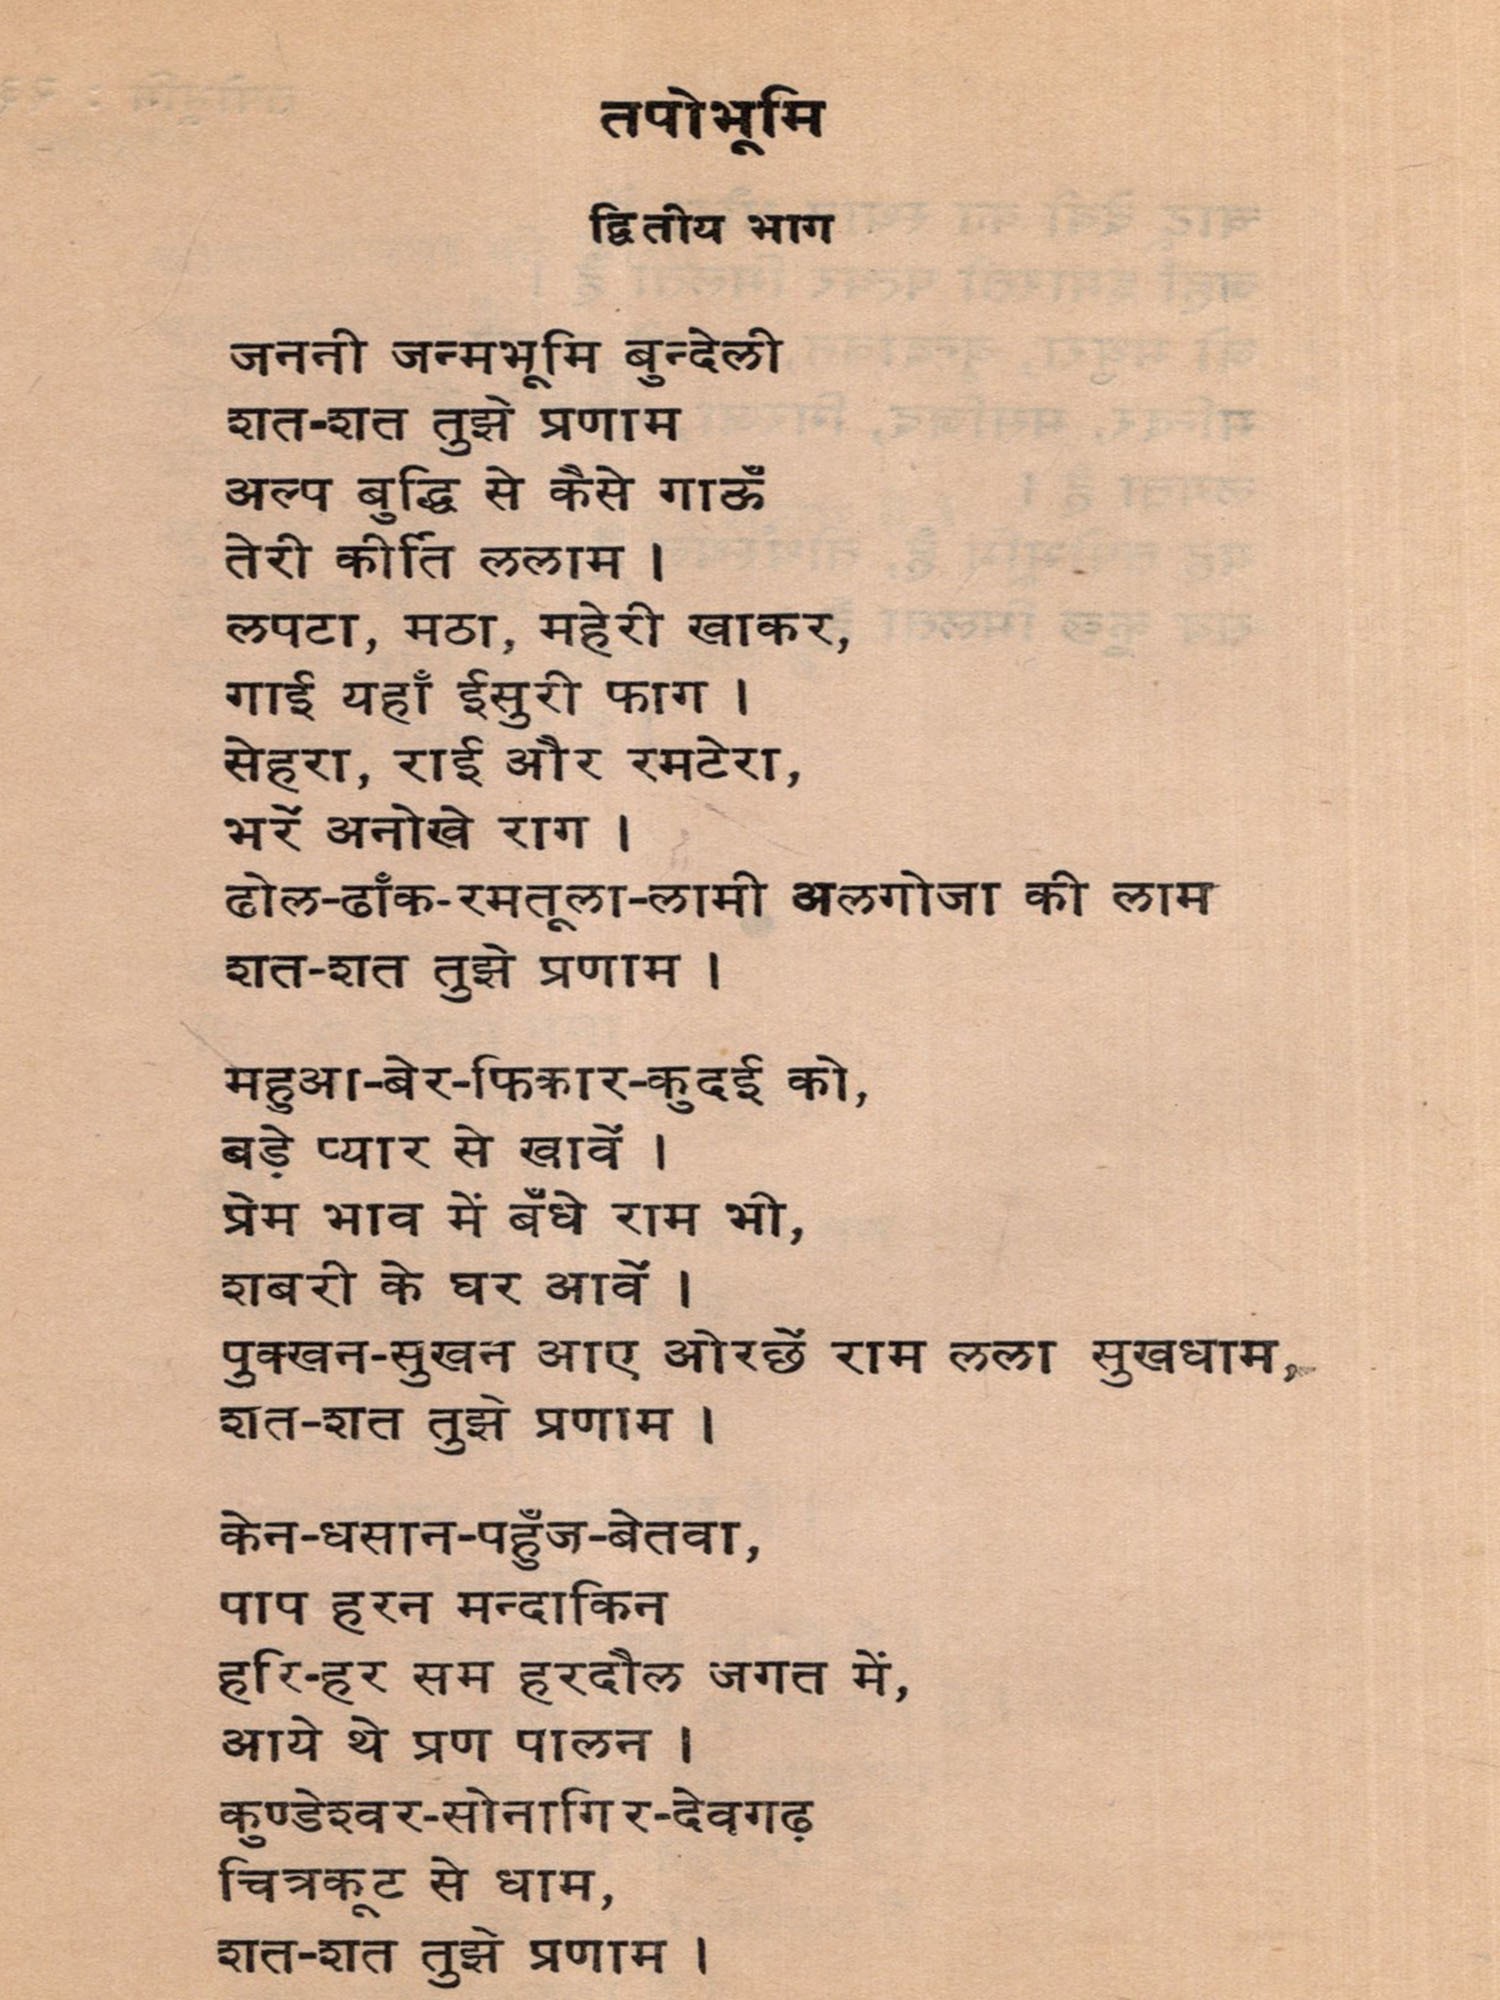 तपोभूमि
द्वितीय भाग
जननी जन्मभूमि बुन्देली
शत-शत तुझे प्रणाम
अल्प बुद्धि से कैसे गाऊँ
तेरी कीर्ति ललाम ।
लपटा, मठा, महेरी खाकर,
गाई यहाँ ईसुरी फाग ।
सेहरा, राई और रमटेरा,
भरें अनोखे राग ।
ढोल-ढाँक-रमतूला-लामी अलगोजा की लाम
शत-शत तुझे प्रणाम ।
महुआ-बेर-फिकार-कुदई को,
बड़े प्यार से खावें ।
प्रेम भाव में बँधे राम भी,
शबरी के घर आवें ।
पुक्खन-सुखन आए ओरछें राम लला सुखधाम,
शत-शत तुझे प्रणाम ।
केन-धसान-पहुँज-बेतवा,
पाप हरन मन्दाकिन
हरि-हर सम हरदौल जगत में,
आये थे प्रण पालन ।
कुण्डेश्वर-सोनागिर-देवगढ़
चित्रकूट से धाम,
शत-शत तुझे प्रणाम ।